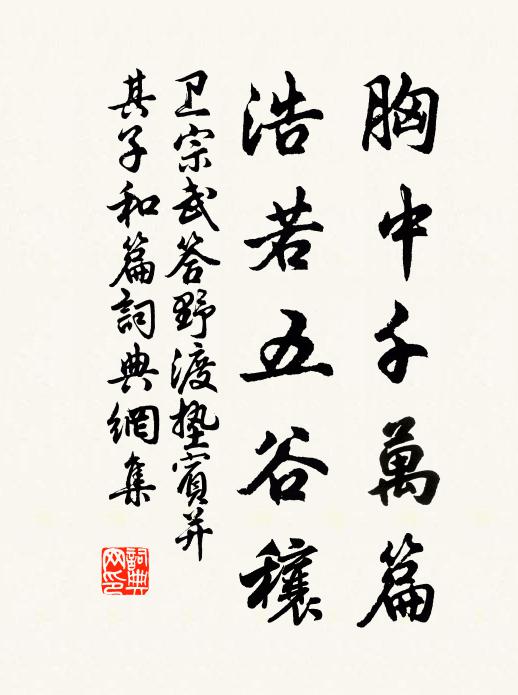 胸中千萬篇
浩若五谷穰
卫宗武答野渡塾賓并
其子和篇詞典網集
詞典网印